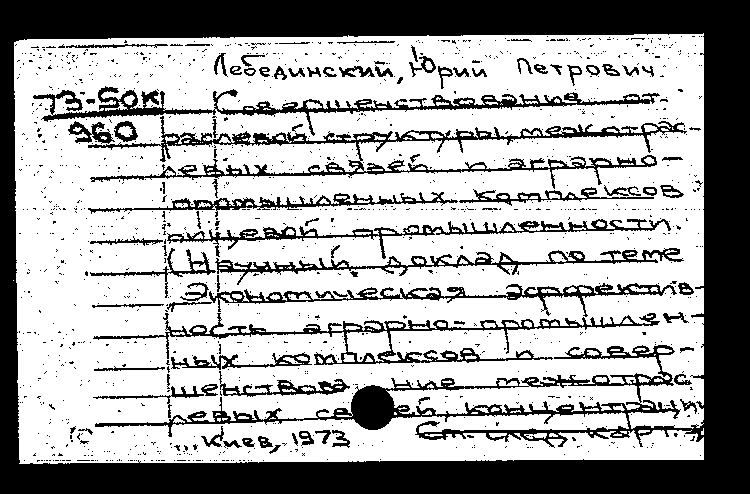 Лебединский, Юрий Петрович.
73-50к
960
Совершенствование от-
раслевой структуры, межотрас-
левых связей и аграрно-
промышленных комплексов
пищевой промышленности.
(Научный доклад по теме
Экономическая эффектив-
ность аграрно-промышлен-
ных комплексов и совер-
шенствова ние межотрас-
левых связей, концентрации
... Киев, 1973 См. след. карт.